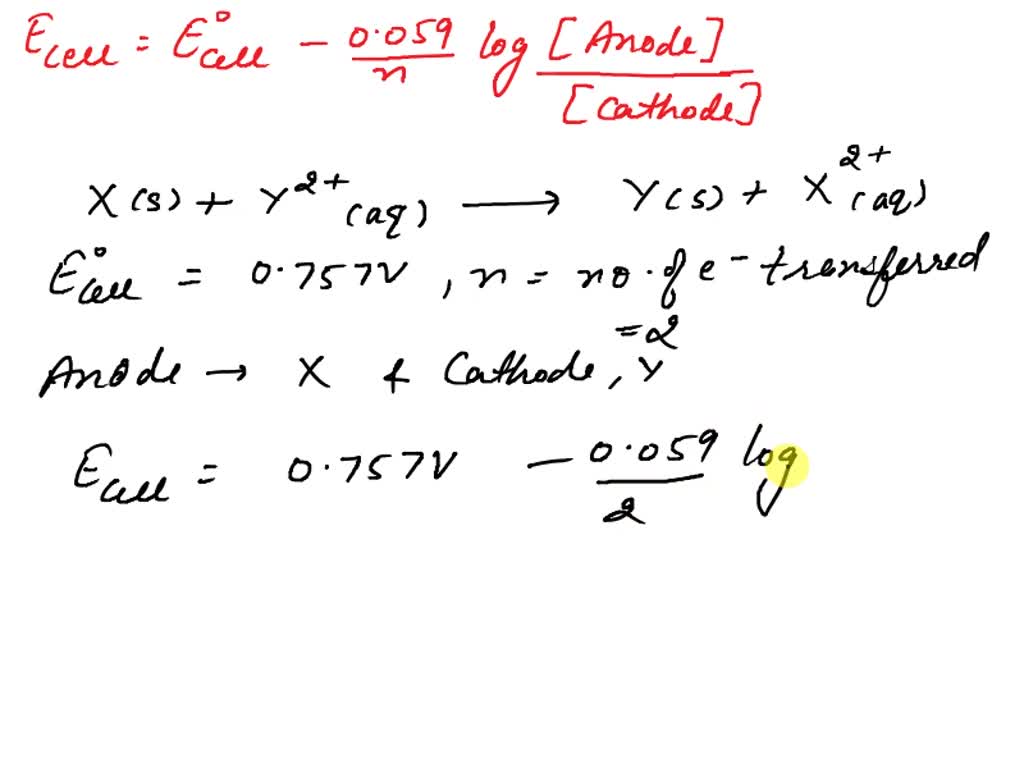 Ecell = E°cell - 0.059/n log [Anode]/[Cathode]
X(s) + Y2+(aq) ⟶ Y(s) + X2+(aq)
E°cell = 0.757V, n = no. of e- transferred
= 2
Anode → X & Cathode, Y
Ecell = 0.757V - 0.059/2 log